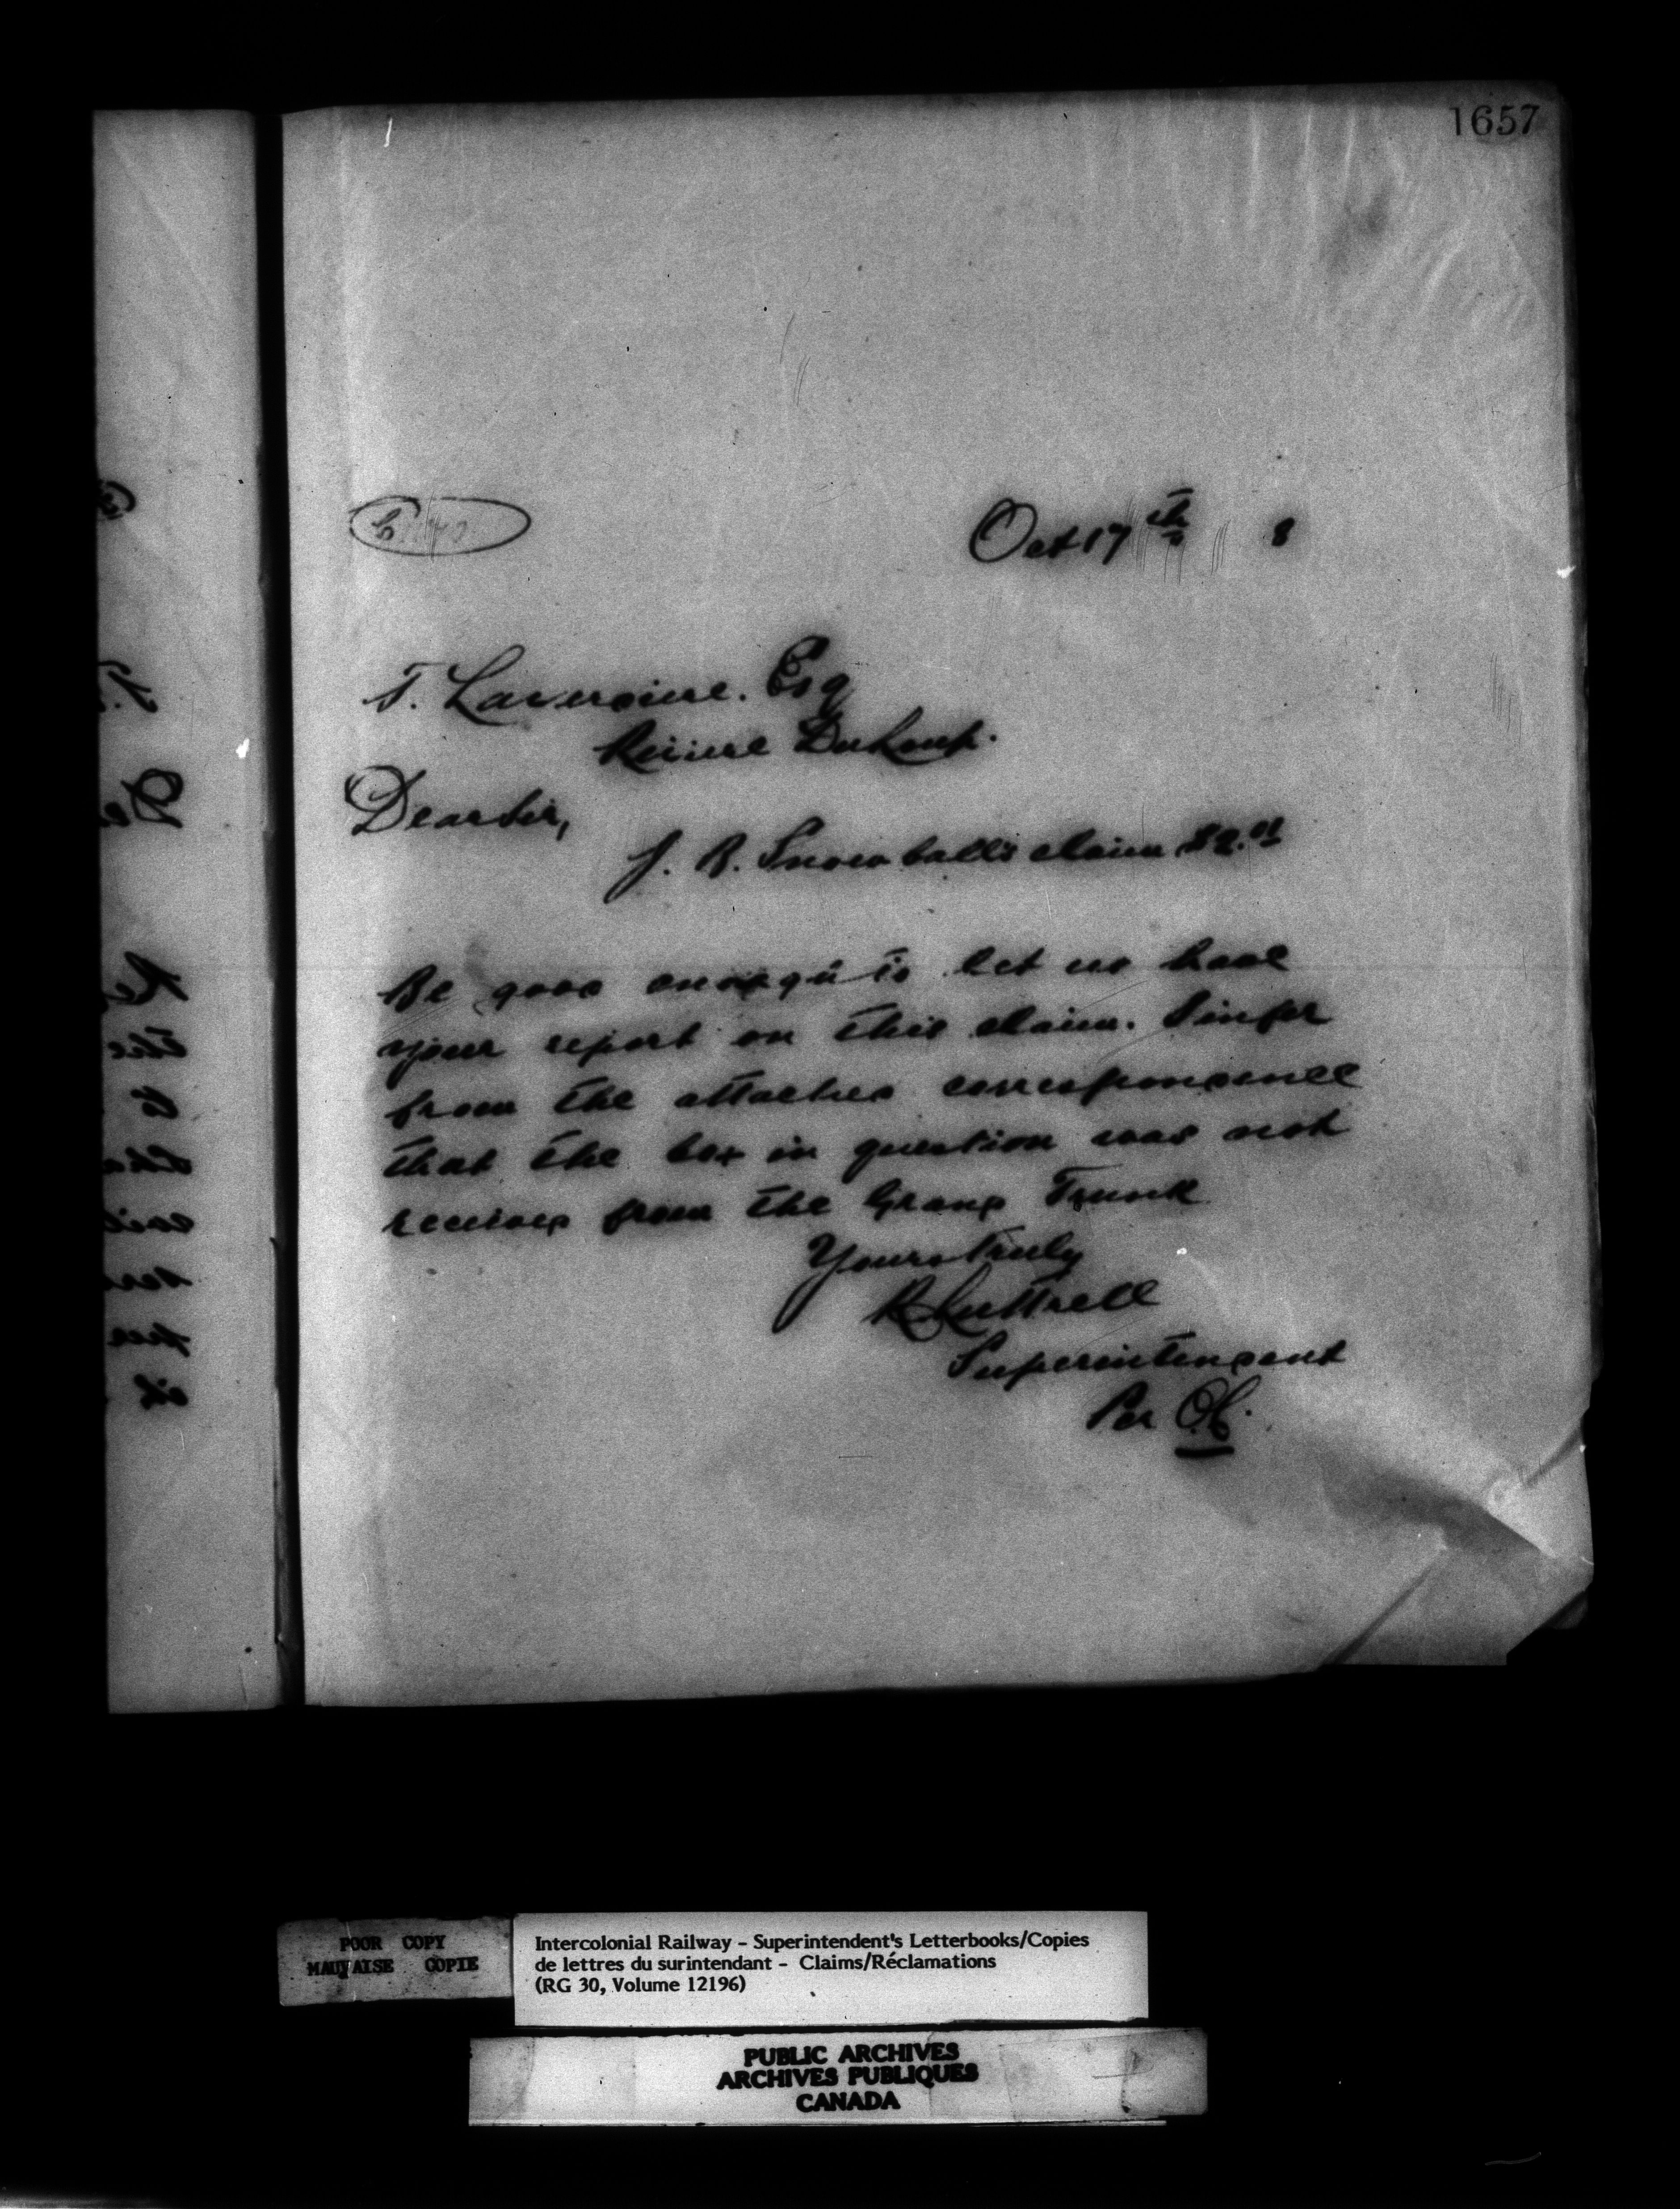 1657
Oct 17th 8
T. Laverdiere. Esq
Riviere DuLoup.
Dear Sir,
J. B. Snowball's claim $2.01
Be good enough to let us have
your report on this claim. I infer
from the attached correspondence
that the box in question was not
received from the Grand Trunk
Yours truly
R Luttrell
Superintendent
Per O.C.
POOR COPY
MAUVAISE COPIE
Intercolonial Railway – Superintendent's Letterbooks/Copies
de lettres du surintendant – Claims/Réclamations
(RG 30, Volume 12196)
PUBLIC ARCHIVES
ARCHIVES PUBLIQUES
CANADA